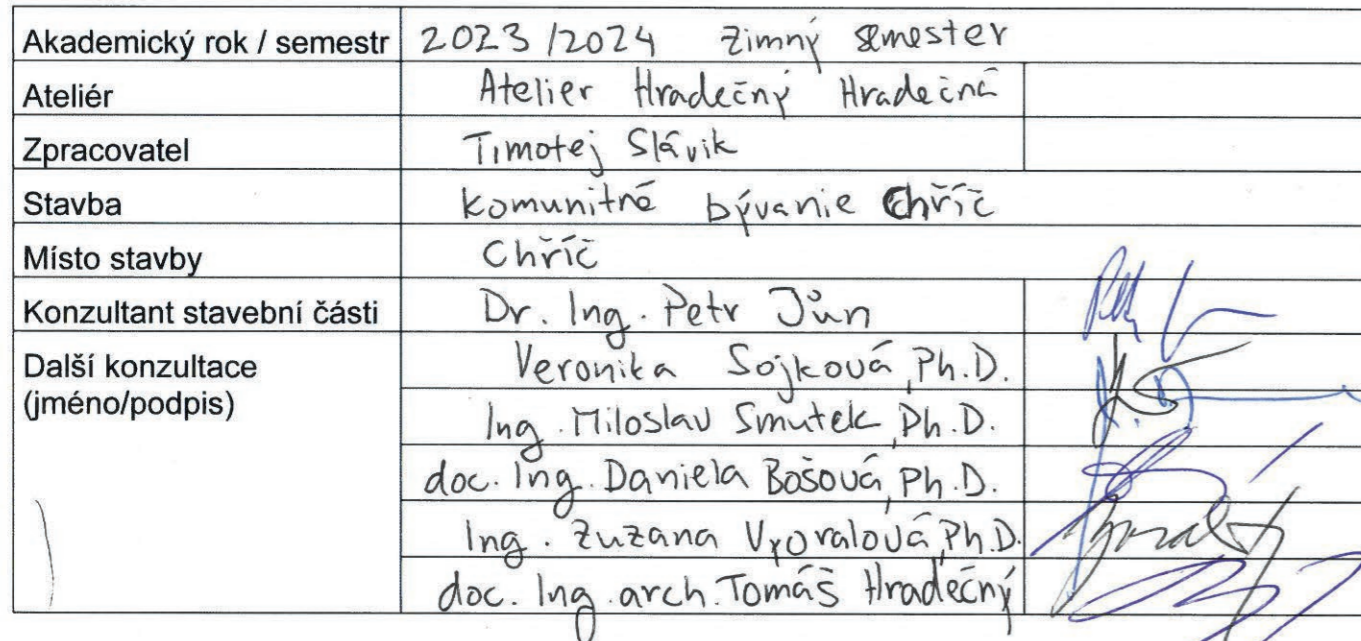 Akademický rok / semestr 2023/2024 Zimný semester
Ateliér Atelier Hradečný Hradečná
Zpracovatel Timotej Slávik
Stavba Komunitné bývanie Chříč
Místo stavby Chříč
Konzultant stavební části Dr. Ing. Petr Jůn
Další konzultace Veronika Sojková, Ph.D.
(jméno/podpis) Ing. Miloslav Smutek, Ph.D.
doc. Ing. Daniela Bošová, Ph.D.
Ing. Zuzana Vyoralová, Ph.D.
doc. Ing. arch. Tomáš Hradečný